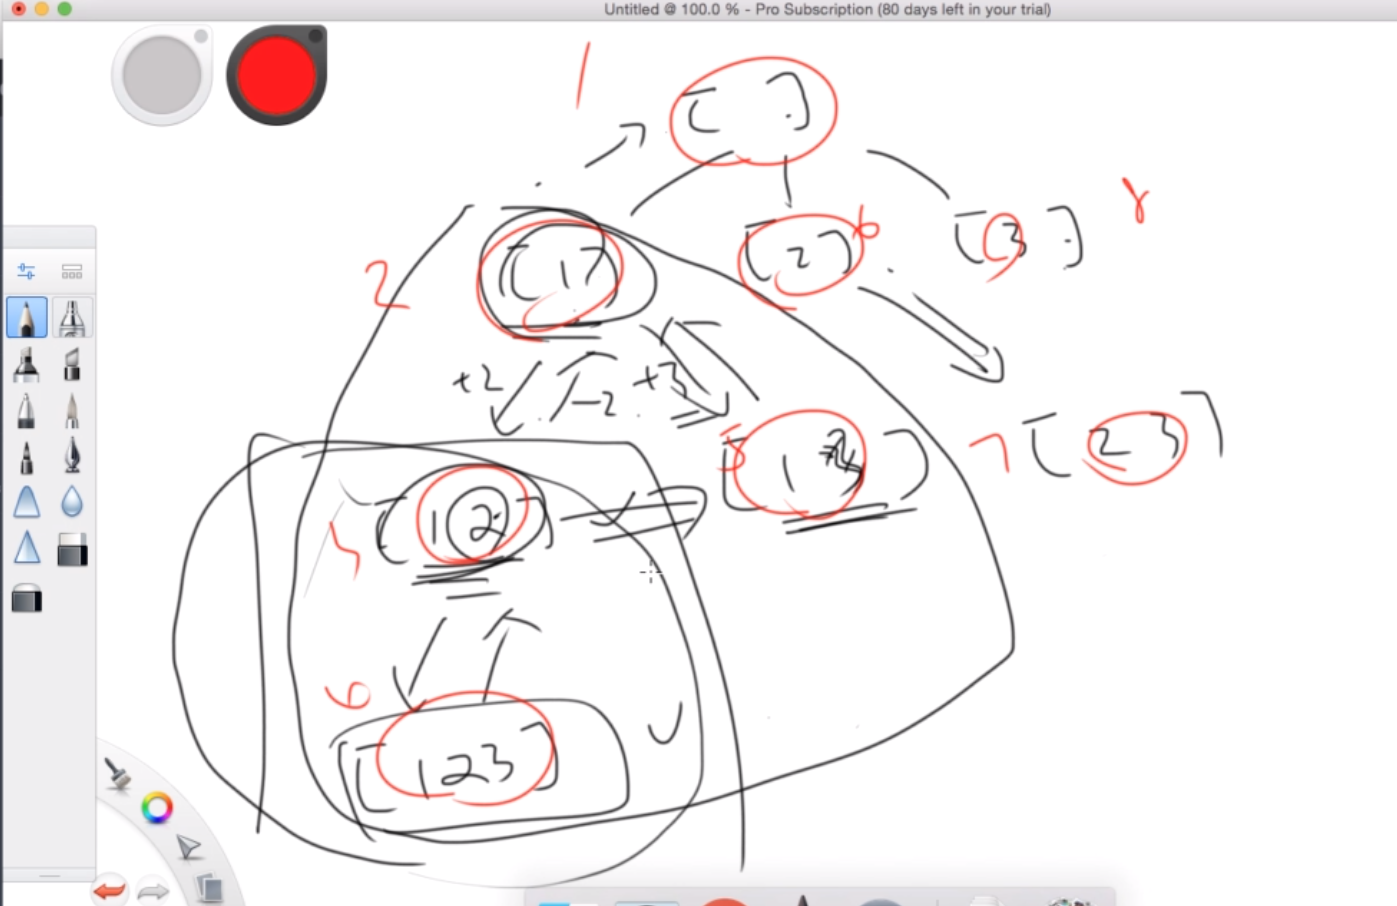 Untitled @ 100.0 % - Pro Subscription (80 days left in your trial)
1
[ ]
2
[1]
[2]
6
[3]
+2
-2
+3
[12]
5
[1 ]
7
[23]
[123]